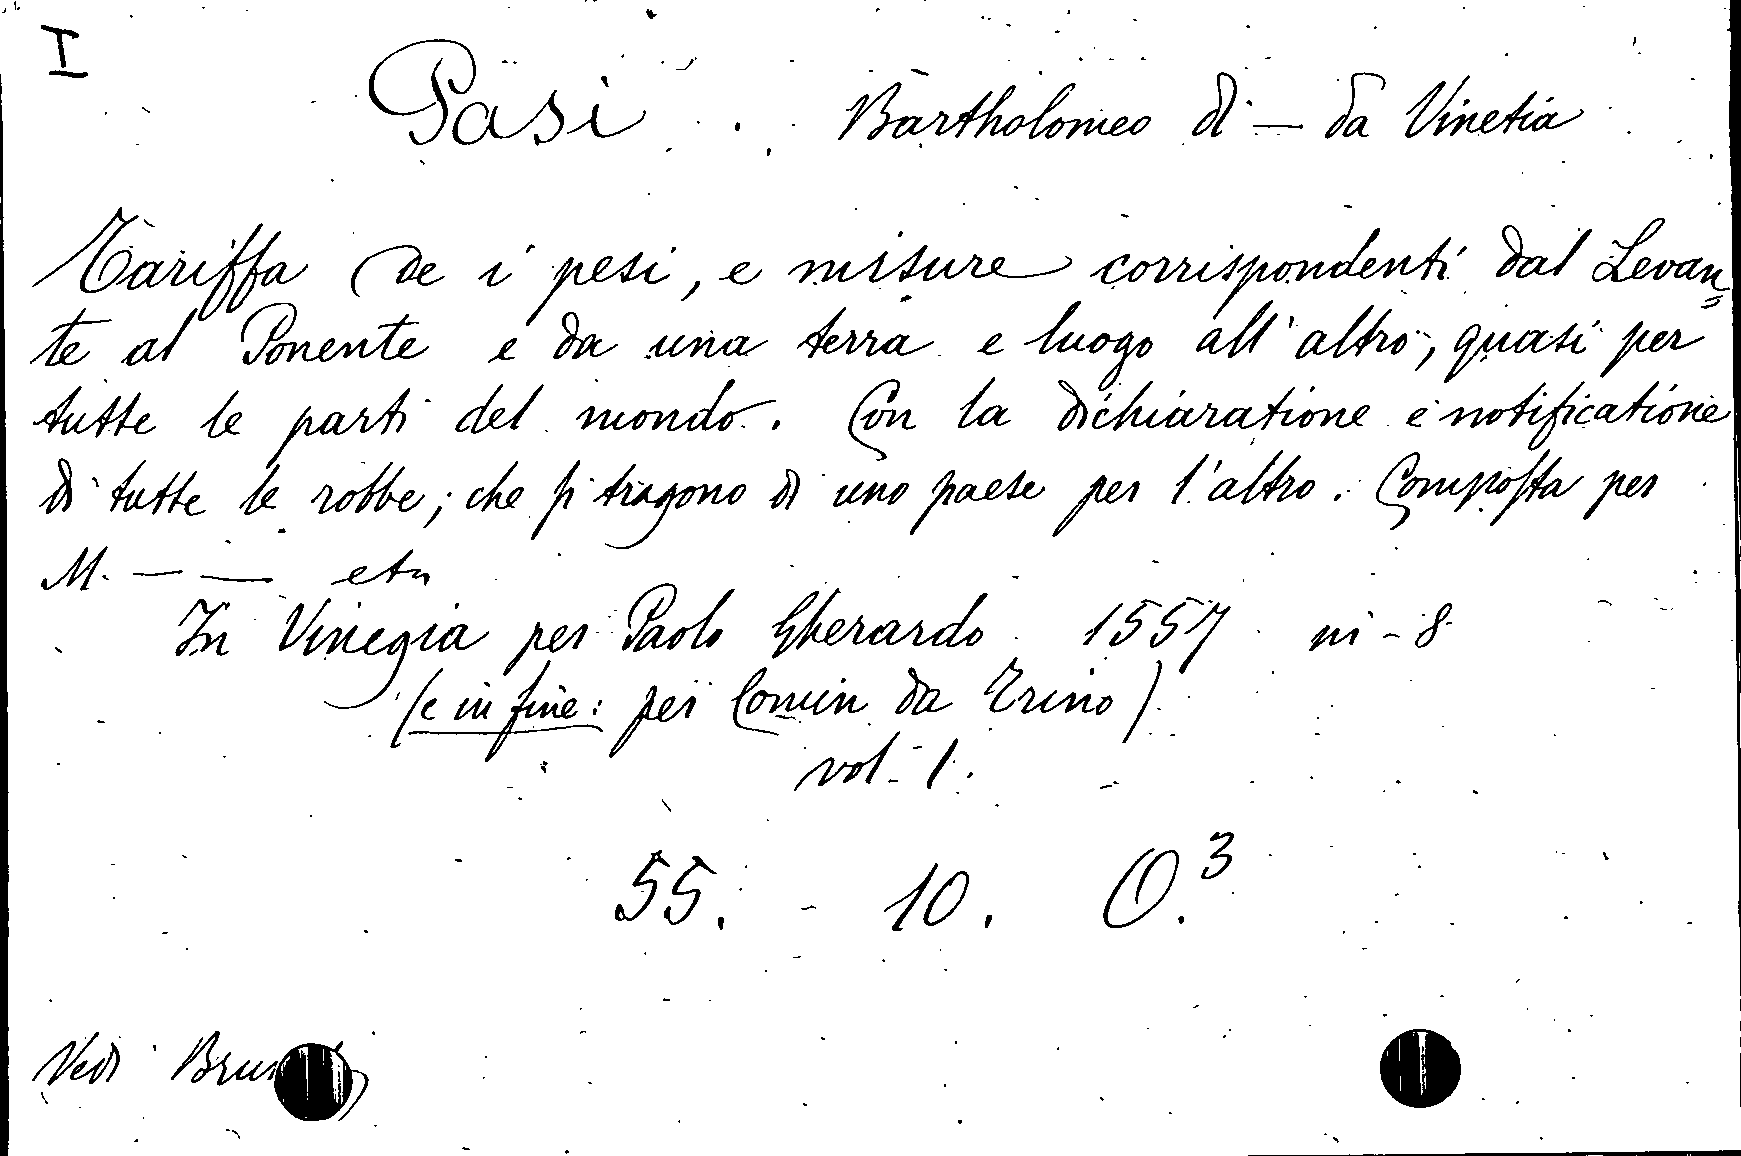 I
Pasi . Bartholomeo di — da Vinetia
Tariffa de i pesi, e misure corrispondenti dal Levan=
te al Ponente e da una terra e luogo all' altro, quasi per
tutte le parti del mondo. Con la dichiaratione e notificatione
di tutte le robbe; che ſi tragono di uno paese per l'altro. Compoſta per
M. — — etc
In Vinegia per Paolo Gherardo 1557 in-8
(e in fine: per Comin da Trino)
vol. 1.
55. - 10. O.3
Vedi